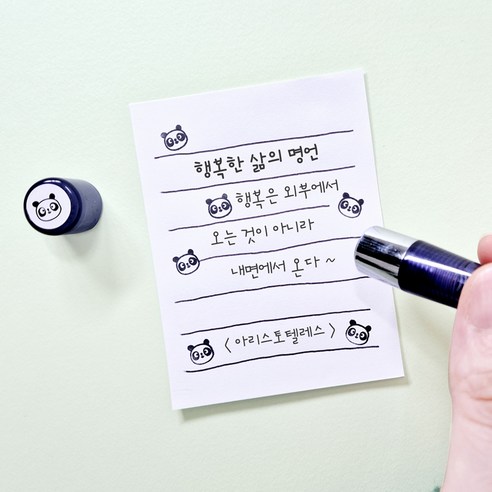 행복한 삶의 명언
행복은 외부에서
오는 것이 아니라
내면에서 온다 ~
< 아리스토텔레스 >